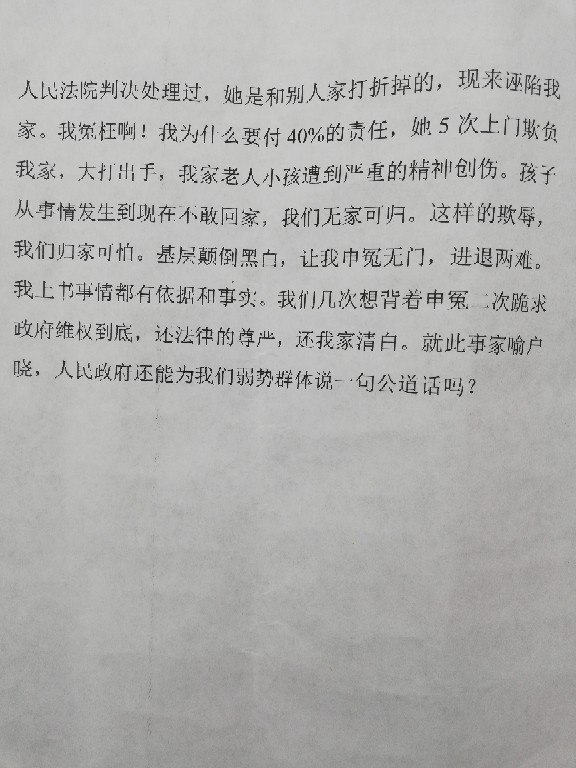 人民法院判决处理过，她是和别人家打折掉的，现来诬陷我
家。我冤枉啊！我为什么要付 40%的责任，她 5 次上门欺负
我家，大打出手，我家老人小孩遭到严重的精神创伤。孩子
从事情发生到现在不敢回家，我们无家可归。这样的欺辱，
我们归家可怕。基层颠倒黑白，让我申冤无门，进退两难。
我上书事情都有依据和事实。我们几次想背着申冤二次跪求
政府维权到底，还法律的尊严，还我家清白。就此事家喻户
晓，人民政府还能为我们弱势群体说一句公道话吗？